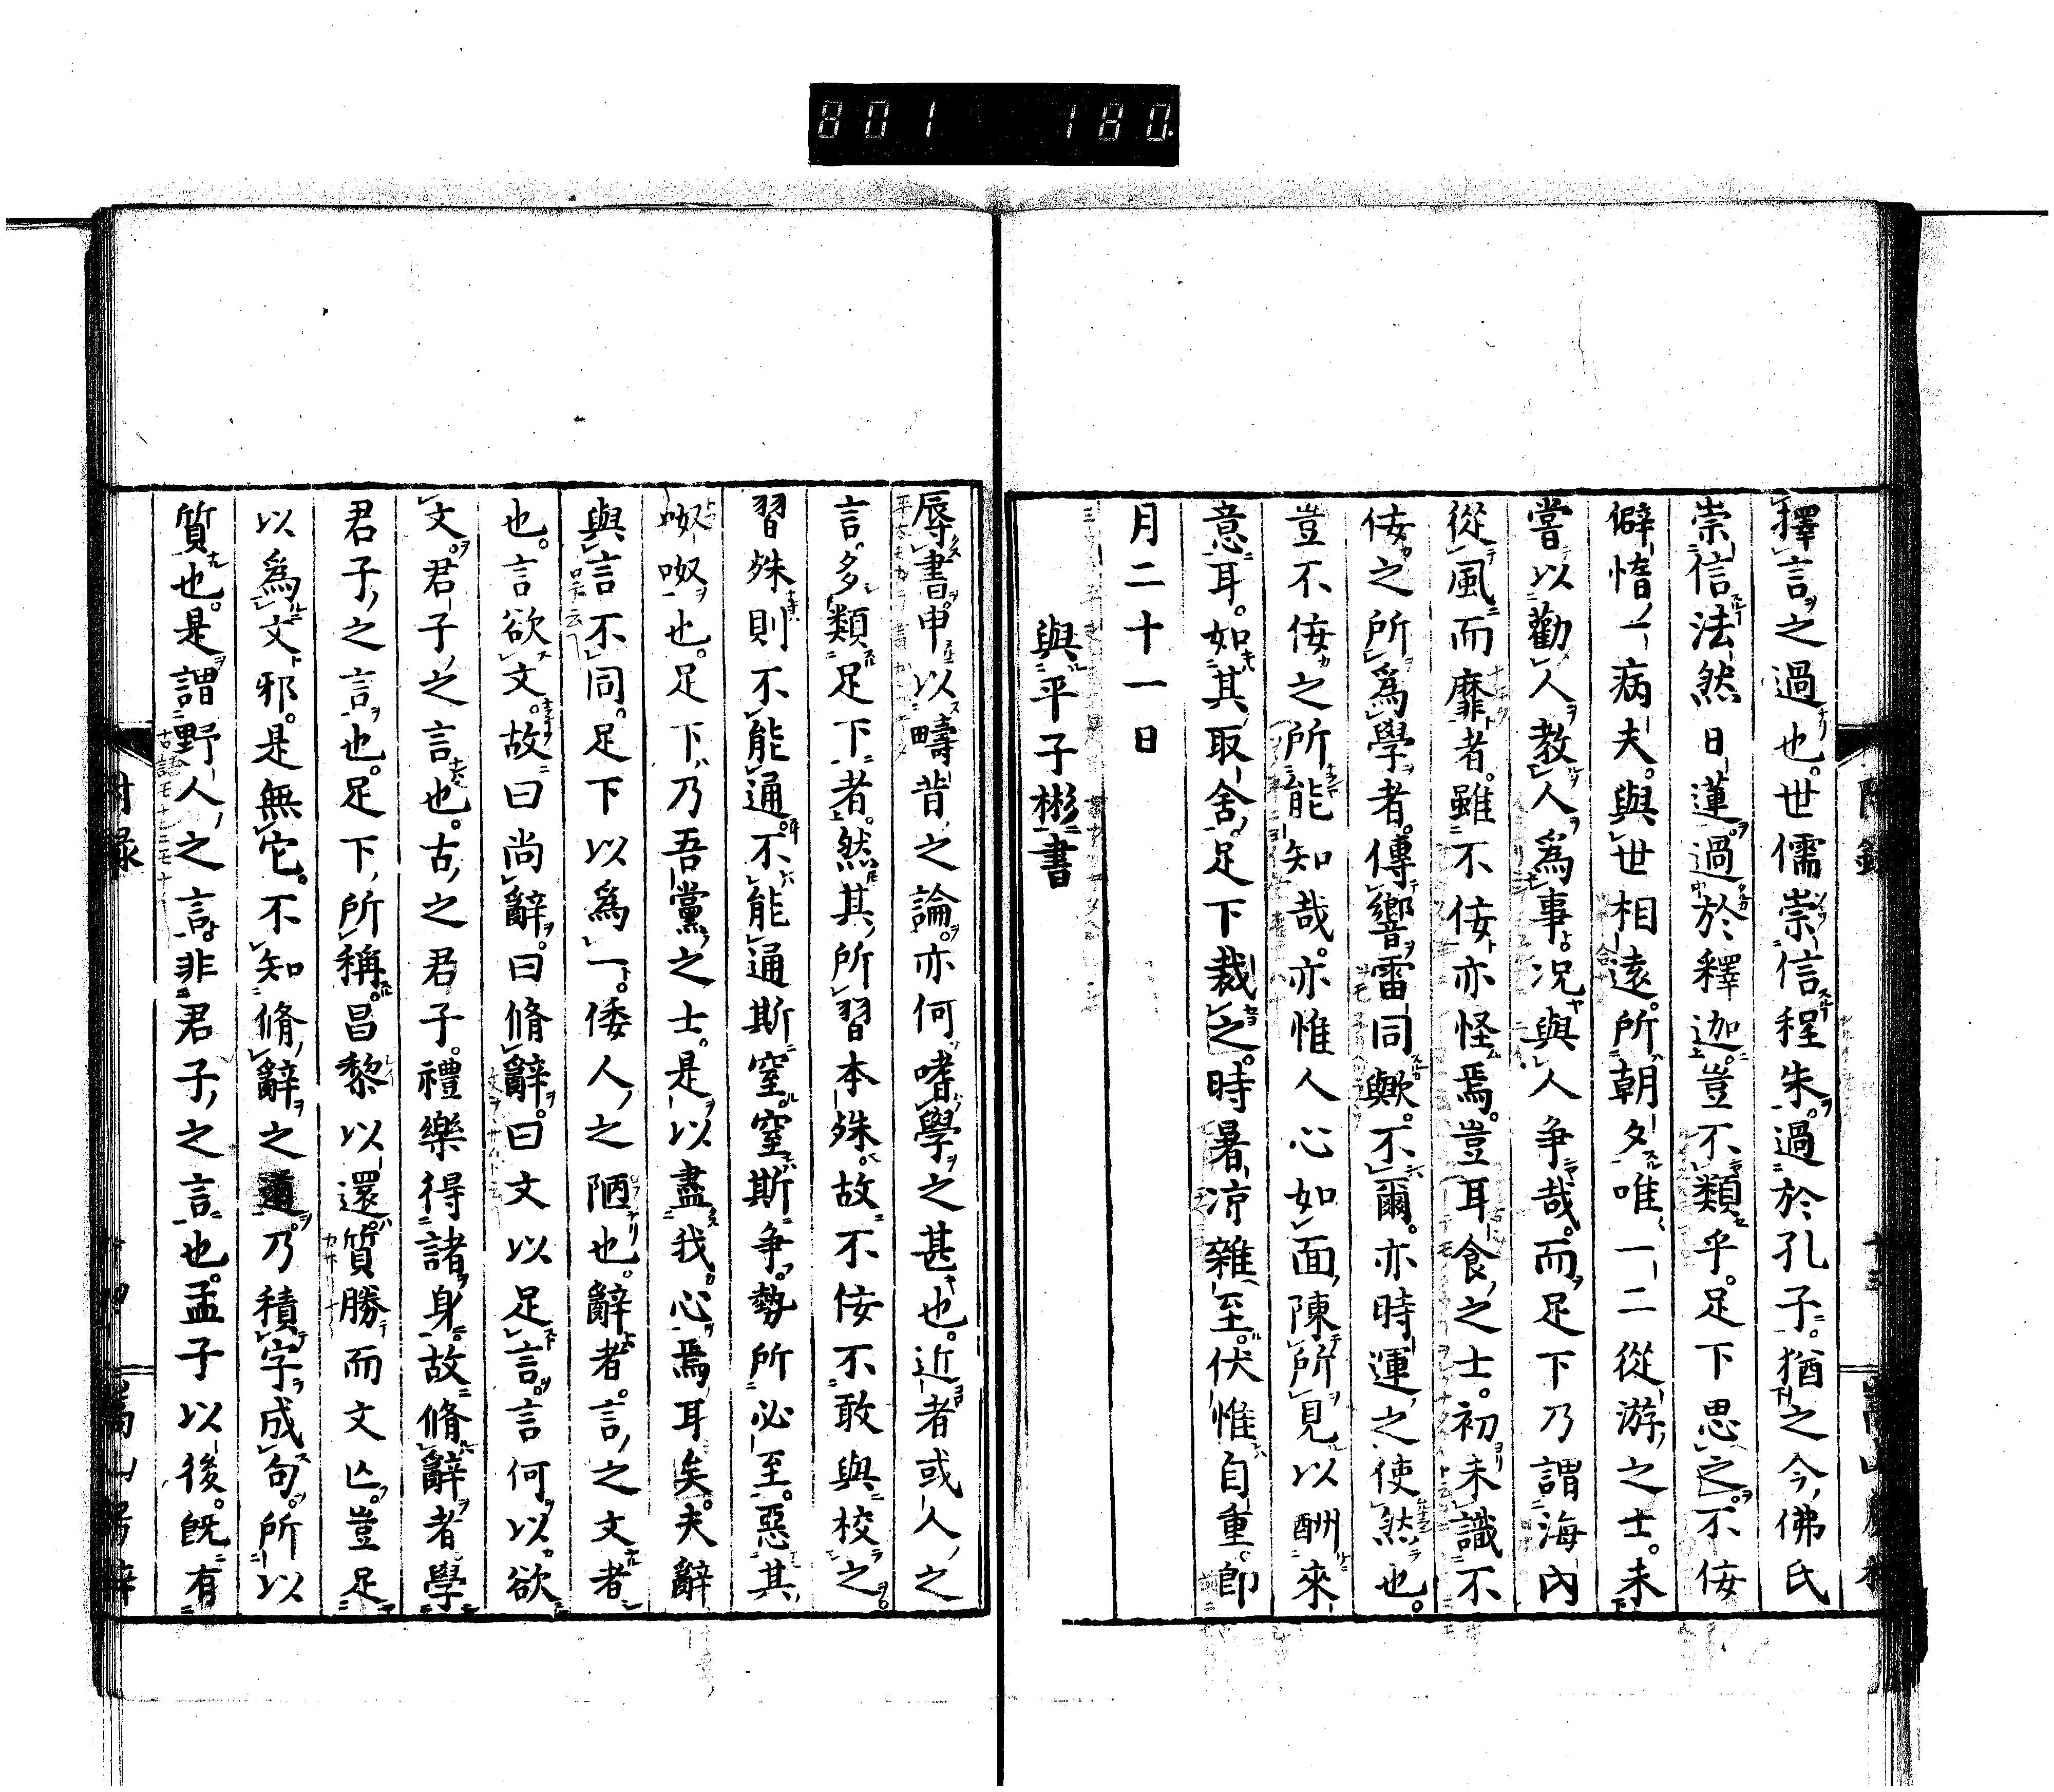 801 180
擇言之過也。世儒崇信程朱。過於孔子。猶之今佛氏
崇信法然日蓮。過於釋迦。豈不類乎。足下思之。不佞
僻惰一病夫。與世相遠。所朝夕唯一二從游之士。未
嘗以勸人教人爲事。况與人争哉。而足下乃謂海內
從風而靡者。雖不佞亦怪焉。豈耳食之士。初未識不
佞之所爲學者。傳響雷同歟。不爾。亦時運之使然也。
豈不佞之所能知哉。亦惟人心如面。陳所見以酬來
意耳。如其取舍。足下裁之。時暑凉雜至。伏惟自重。卽
月二十一日
與平子彬書
辱書。申以疇昔之論。亦何嗜學之甚也。近者或人之
言。多類足下者。然其所習本殊。故不佞不敢與校之。
習殊則不能通。不能通斯窒。窒斯争。勢所必至。惡其
呶呶也。足下乃吾黨之士。是以盡我心焉耳矣。夫辭
與言不同。足下以爲一。倭人之陋也。辭者。言之文者
也。言欲文。故曰尚辭。曰脩辭。曰文以足言。言何以欲
文。君子之言也。古之君子。禮樂得諸身。故脩辭者學
君子之言也。足下所稱。昌黎以還。質勝而文亡。豈足
以爲文邪。是無它。不知脩辭之道。乃積字成句。所以
質也。是謂野人之言。非君子之言也。孟子以後。旣有
附錄